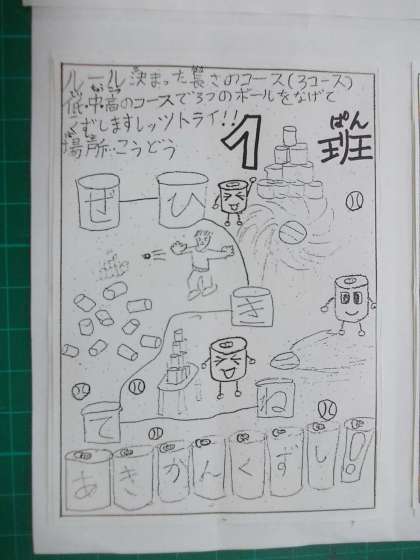 ルール決まった長さのコース(3コース)
低・中・高のコースで3つのボールをなげて
くずしますレッツトライ!!
場所…こうどう
1班
ぱん
ぜひ
き
てね
あきかんくずし!!